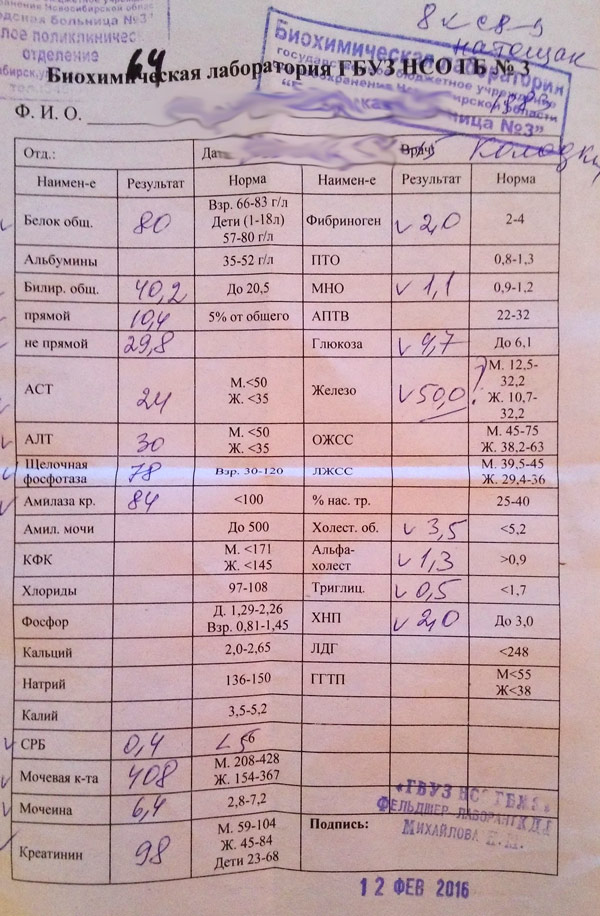 8 кс 8-9
натощак
Городская больница №3"
отделение
Биохимическая лаборатория
государственное бюджетное учреждение
64
Биохимическая лаборатория ГБУЗ НСО ГБ № 3
Ф. И. О.
Отд.: Дата Врач:
Наимен-е Результат Норма Наимен-е Результат Норма
Белок общ. 80 Взр. 66-83 г/л Дети (1-18л) 57-80 г/л Фибриноген 2,0 2-4
Альбумины 35-52 г/л ПТО 0,8-1,3
Билир. общ. 40,2 До 20,5 МНО 1,1 0,9-1,2
прямой 10,4 5% от общего АПТВ 22-32
не прямой 29,8 Глюкоза 4,7 До 6,1
АСТ 24 М.<50 Ж. <35 Железо 50,0 ? ! М. 12,5-32,2 Ж. 10,7-32,2
АЛТ 30 М. <50 Ж. <35 ОЖСС М. 45-75 Ж. 38,2-63
Щелочная фосфотаза 78 Взр. 30-120 ЛЖСС М. 39,5-45 Ж. 29,4-36
Амилаза кр. 84 <100 % нас. тр. 25-40
Амил. мочи До 500 Холест. об. 3,5 <5,2
КФК М. <171 Ж. <145 Альфа-холест 1,3 >0,9
Хлориды 97-108 Триглиц. 0,5 <1,7
Фосфор Д. 1,29-2,26 Взр. 0,81-1,45 ХНП 2,0 До 3,0
Кальций 2,0-2,65 ЛДГ <248
Натрий 136-150 ГГТП М<55 Ж<38
Калий 3,5-5,2
СРБ 0,4 <5 6
Мочевая к-та 408 М. 208-428 Ж. 154-367
Мочеина 6,4 2,8-7,2
Креатинин 98 М. 59-104 Ж. 45-84 Дети 23-68 Подпись:
«ГБУЗ НСО ГБ№3»
ФЕЛЬДШЕР-ЛАБОРАНТ КДЛ
МИХАЙЛОВА Е.М.
12 ФЕВ 2016